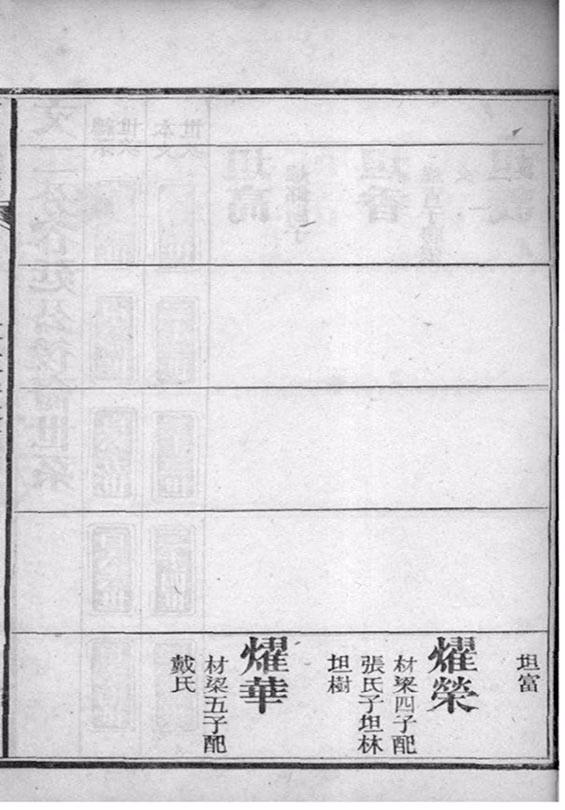 坦富
燿榮
材梁四子配
張氏子坦林
坦樹
燿華
材梁五子配
戴氏